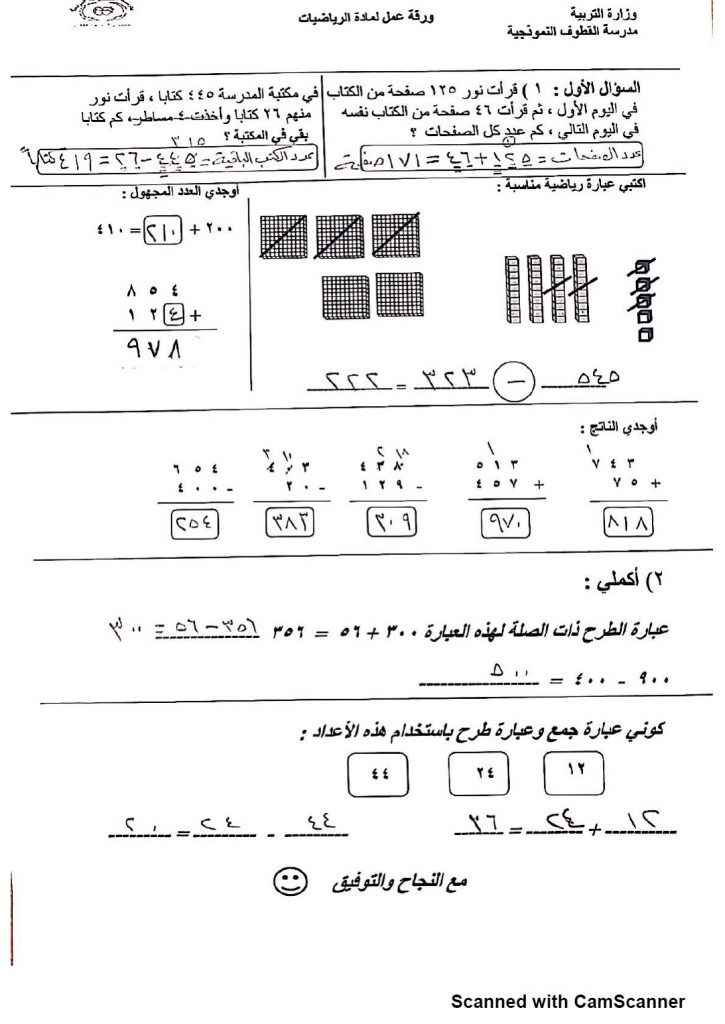 وزارة التربية
مدرسة القطوف النموذجية
ورقة عمل لمادة الرياضيات
السؤال الأول : ١ ) قرأت نور ١٢٥ صفحة من الكتاب
في اليوم الأول ، ثم قرأت ٤٦ صفحة من الكتاب نفسه
في اليوم التالي ، كم عدد كل الصفحات ؟
عدد الصفحات = ١٢٥+٤٦ = ١٧١ صفحة
في مكتبة المدرسة ٤٤٥ كتابا ، قرأت نور
منهم ٢٦ كتابا وأخذت ٤ مساطر، كم كتابا
بقي في المكتبة ؟
٣ ١٥
عدد الكتب الباقية = ٤٤٥-٢٦ = ٤١٩ كتاباً
اكتبي عبارة رياضية مناسبة :
٥٤٥ - ٣٢٣ = ٢٢٢
أوجدي العدد المجهول :
٢٠٠ + ٢١٠ = ٤١٠
٨ ٥ ٤
١ ٢ ٤ +
٩٧٨
أوجدي الناتج :
١
٧ ٤ ٣
٧ ٥ +
٨١٨
١
٥ ١ ٣
٤ ٥ ٧ +
٩٧٠
٢ ١٨
٤ ٣ ٨
١ ٢ ٩ -
٣٠٩
٣ ١٠
٤ ٠ ٣
٢ ٠ -
٣٨٣
٦ ٥ ٤
٤ ٠ ٠ -
٢٥٤
٢) أكملي :
عبارة الطرح ذات الصلة لهذه العبارة ٣٠٠ + ٥٦ = ٣٥٦ ٣٥٦ - ٥٦ = ٣٠٠
٩٠٠ - ٤٠٠ = ٥٠٠
كوني عبارة جمع وعبارة طرح باستخدام هذه الأعداد :
١٢ ٢٤ ٤٤
١٢ + ٢٤ = ٣٦ ٤٤ - ٢٤ = ٢٠
مع النجاح والتوفيق
Scanned with CamScanner